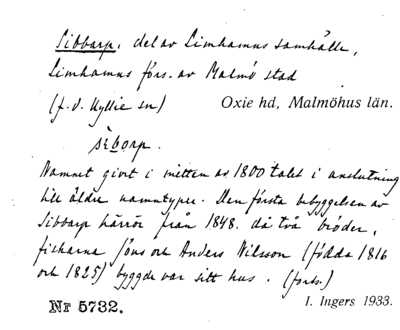 Sibbarp, del av Limhamns samhälle,
Limhamns förs. av Malmö stad
(f.d. Hyllie sn) Oxie hd, Malmöhus län.
sèbarp.
Namnet givet i mitten av 1800talet i anslutning
till äldre namntyper. Den första bebyggelsen av
Sibbarp härrör från 1848. då två bröder,
fiskarna Jöns och Anders Nilsson (födda 1816
och 1825) byggde var sitt hus. (forts.)
Nr 5732. I. Ingers 1933.